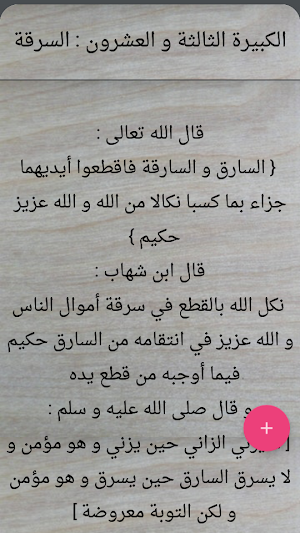 الكبيرة الثالثة و العشرون : السرقة
قال الله تعالى :
{ السارق و السارقة فاقطعوا أيديهما
جزاء بما كسبا نكالا من الله و الله عزيز
حكيم }
قال ابن شهاب :
نكل الله بالقطع في سرقة أموال الناس
و الله عزيز في انتقامه من السارق حكيم
فيما أوجبه من قطع يده
و قال صلى الله عليه و سلم :
[ يزني الزاني حين يزني و هو مؤمن و
لا يسرق السارق حين يسرق و هو مؤمن
و لكن التوبة معروضة ]